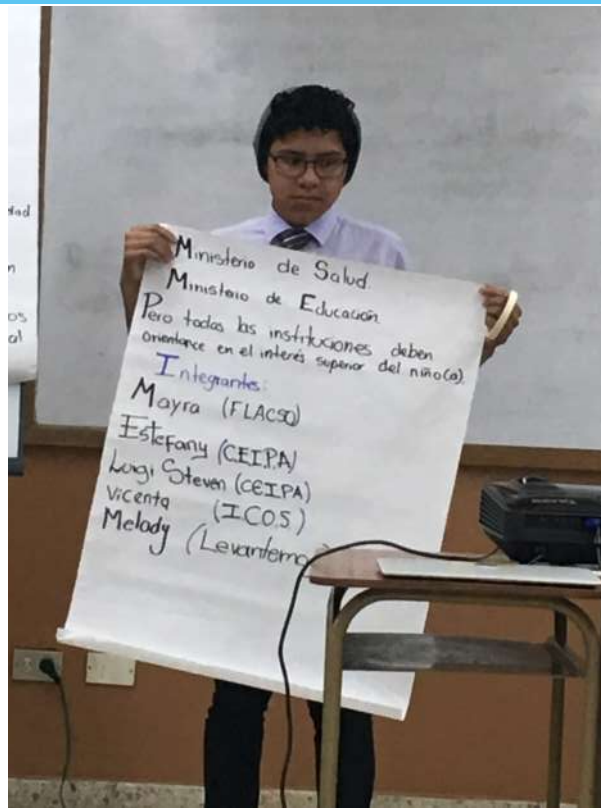 dad
n
os
al
Ministerio de Salud.
Ministerio de Educación.
Pero todas las instituciones deben
orientarce en el interés superior del niño(a).
Integrantes:
Mayra (FLACSO)
Estefany (CEIPA)
Luigi Steven (CEIPA)
Vicenta (ICOS)
Melody (Levantemo